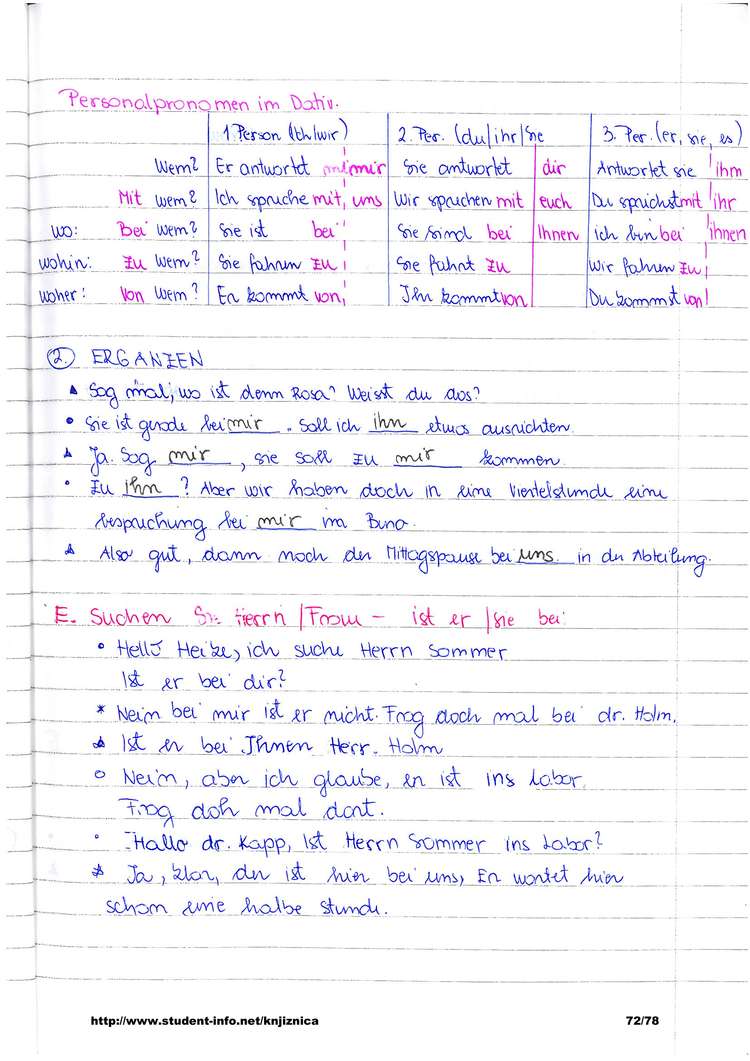 Personalpronomen im Dativ.
1. Person (ich/wir) 2. Per. (du/ihr/Sie 3. Per. (er, sie, es)
Wem? Er antwortet mir Sie antwortet dir Antwortet sie ihm
Mit wem? Ich spreche mit, uns Wir sprechen mit euch Du sprichst mit ihr
wo: Bei wem? Sie ist bei Sie sind bei Ihnen ich bin bei ihnen
wohin: Zu wem? Sie fahren zu Sie fahrt zu Wir fahren zu
woher: Von wem? Er kommt von Ihr kommt von Du kommst von
2. ERGANZEN
Sag mal, wo ist denn Rosa? Weisst du das?
Sie ist gerade bei mir. Soll ich ihn etwas ausrichten.
Ja. Sag mir, sie soll zu mir kommen.
Zu ihn? Aber wir haben doch in eine Viertelstunde eine
besprechung bei mir im Büro.
Also gut, dann nach der Mittagspause bei uns in der Abteilung.
E. Suchen Sie Herrn/Frau – ist er/sie bei:
Hello Heike, ich suche Herrn Sommer
Ist er bei dir?
* Nein bei mir ist er nicht. Frag doch mal bei dr. Holm.
Ist er bei Ihnen Herr. Holm
Nein, aber ich glaube, er ist ins Labor.
Frag doh mal dort.
Hallo dr. Kapp, Ist Herrn Sommer ins Labor?
Ja, klar, der ist hier bei uns, Er wartet hier
schon eine halbe Stunde.
http://www.student-info.net/knjiznica 72/78